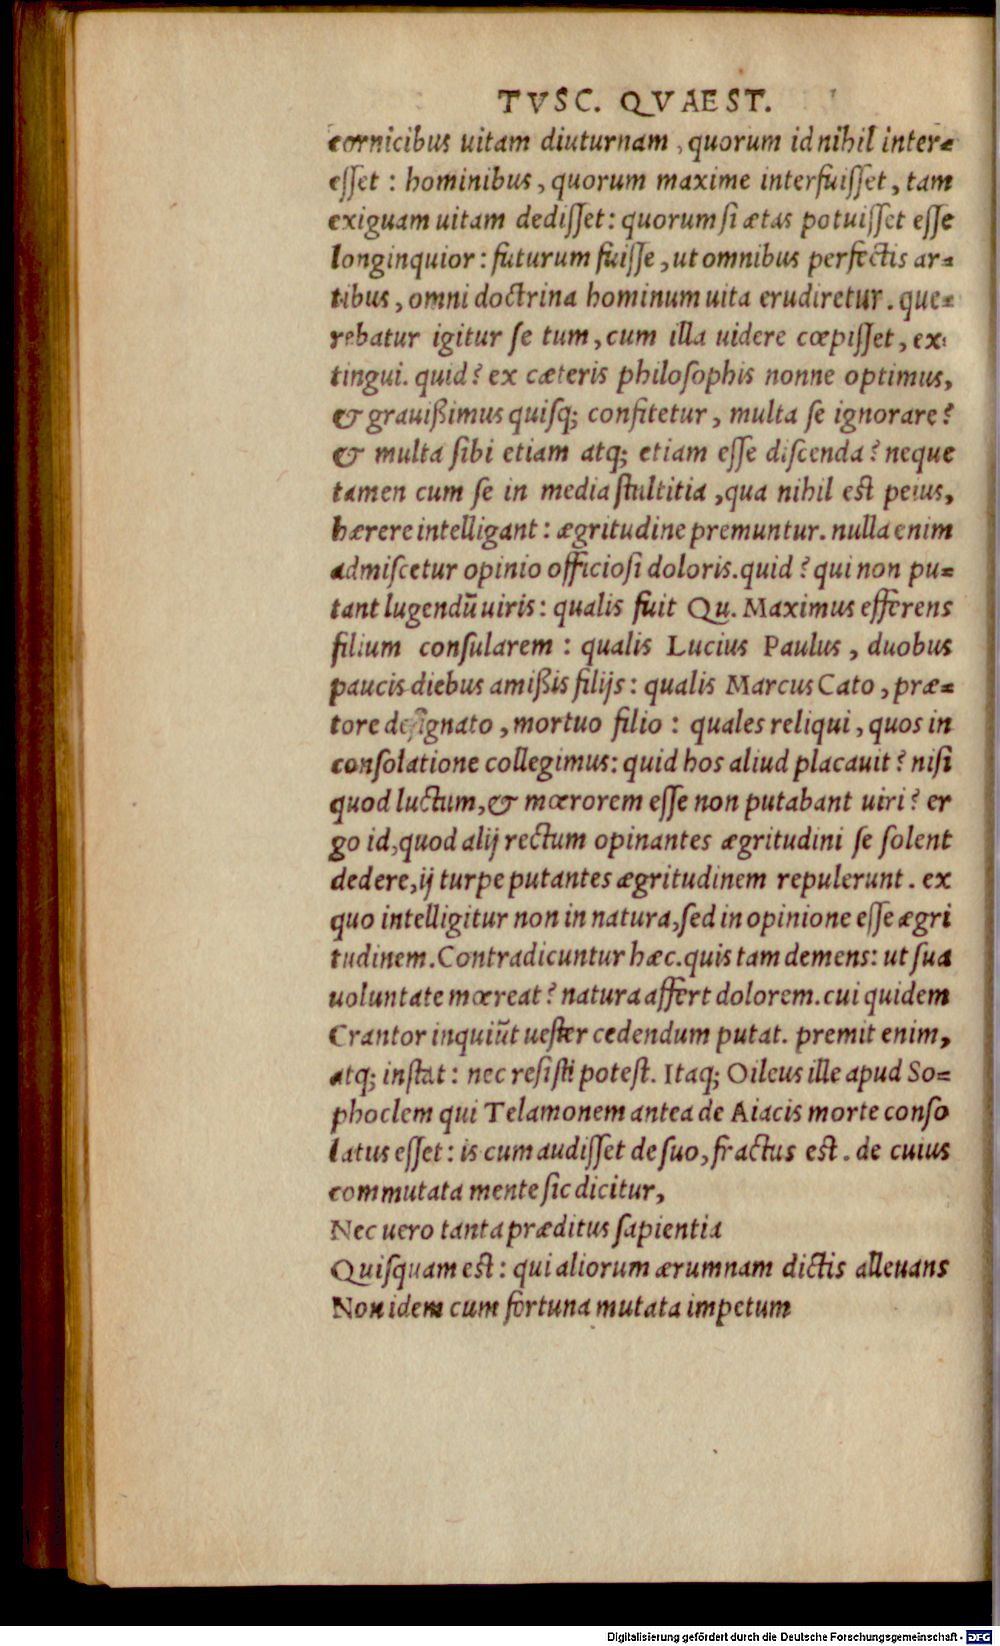 TVSC. QVAEST.
cornicibus uitam diuturnam, quorum id nihil inter=
esset : hominibus, quorum maxime interfuisset, tam
exiguam uitam dedisset: quorum si ætas potuisset esse
longinquior: futurum fuisse, ut omnibus perfectis ar=
tibus, omni doctrina hominum uita erudiretur. que=
rebatur igitur se tum, cum illa uidere cœpisset, ex=
tingui. quid? ex cæteris philosophis nonne optimus,
& grauißimus quisq; confitetur, multa se ignorare?
& multa sibi etiam atq; etiam esse discenda? neque
tamen cum se in media stultitia, qua nihil est peius,
hærere intelligant: ægritudine premuntur. nulla enim
admiscetur opinio officiosi doloris. quid? qui non pu=
tant lugendū uiris: qualis fuit Qu. Maximus efferens
filium consularem : qualis Lucius Paulus, duobus
paucis diebus amißis filijs: qualis Marcus Cato, præ=
tore designato, mortuo filio : quales reliqui, quos in
consolatione collegimus: quid hos aliud placauit? nisi
quod luctum, & mœrorem esse non putabant uiri? er
go id, quod alij rectum opinantes ægritudini se solent
dedere, ij turpe putantes ægritudinem repulerunt. ex
quo intelligitur non in natura, sed in opinione esse ægri
tudinem. Contradicuntur hæc. quis tam demens: ut sua
uoluntate mœreat? natura affert dolorem. cui quidem
Crantor inquiūt uester cedendum putat. premit enim,
atq; instat: nec resisti potest. Itaq; Oileus ille apud So=
phoclem qui Telamonem antea de Aiacis morte conso
latus esset: is cum audisset de suo, fractus est. de cuius
commutata mente sic dicitur,
Nec uero tanta præditus sapientia
Quisquam est: qui aliorum ærumnam dictis alleuans
Non idem cum fortuna mutata impetum
Digitalisierung gefördert durch die Deutsche Forschungsgemeinschaft - DFG